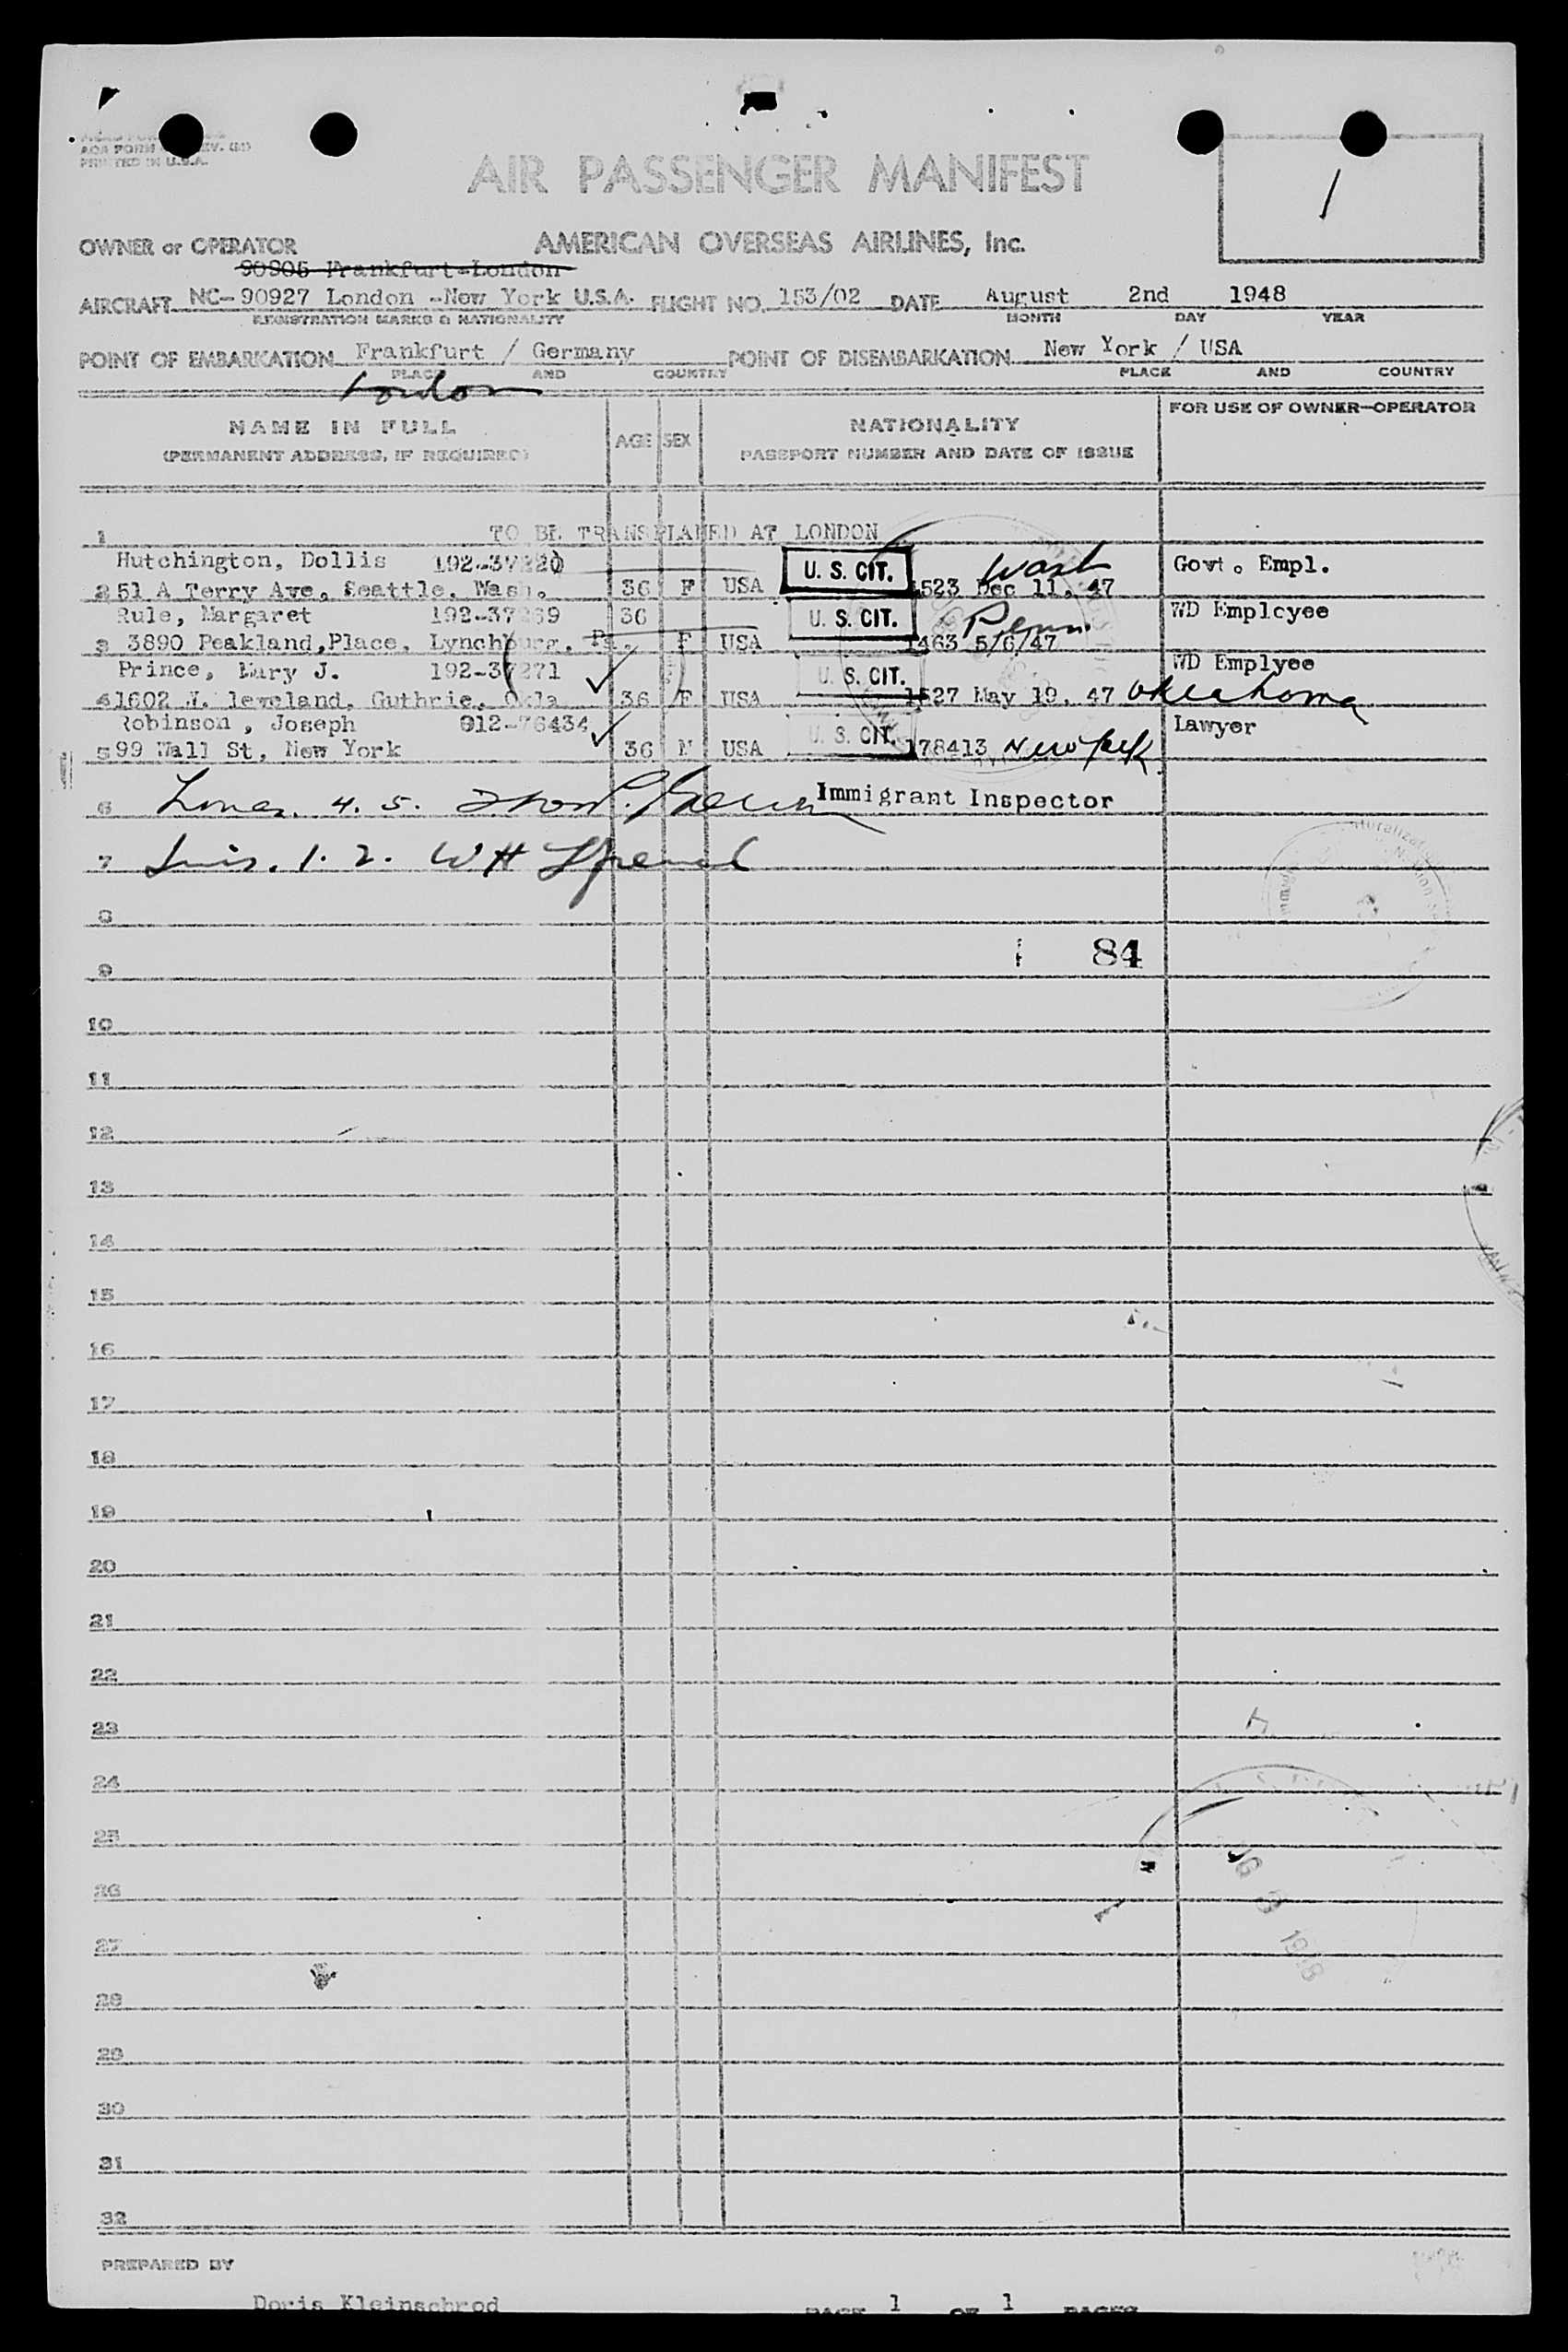 AOA FORM REV. (H)
PRINTED IN U.S.A.
AIR PASSENGER MANIFEST
1
OWNER or OPERATOR AMERICAN OVERSEAS AIRLINES, Inc.
90905 Frankfurt-London
AIRCRAFT NC-90927 London -New York U.S.A. FLIGHT NO. 153/02 DATE August 2nd 1948
REGISTRATION MARKS & NATIONALITY MONTH DAY YEAR
POINT OF EMBARKATION Frankfurt / Germany POINT OF DISEMBARKATION New York / USA
PLACE AND COUNTRY PLACE AND COUNTRY
London
NAME IN FULL AGE SEX NATIONALITY FOR USE OF OWNER-OPERATOR
(PERMANENT ADDRESS, IF REQUIRED) PASSPORT NUMBER AND DATE OF ISSUE
1 TO BE TRANSPLANED AT LONDON
Hutchington, Dollis U. S. CIT. Wash Govt. Empl.
2 51 A Terry Ave, Seattle, Wash. 36 F USA 1523 Dec 11, 47
Rule, Margaret 36 U. S. CIT. Penn. WD Employee
3 3890 Peakland,Place, Lynchburg, Pa. F USA 1463 5/6/47
Prince, Mary J. 192-37271 U. S. CIT. WD Emplyee
4 1602 N. leveland, Guthrie, Okla 36 F USA 1527 May 19, 47 Oklahoma
Robinson, Joseph 012-76434 U. S. CIT. Lawyer
5 99 Wall St, New York 36 M USA 178413 New York
6 Lines. 4. 5. Immigrant Inspector
7 Lines. 1. 2. W H
8
84
9
10
11
12
13
14
15
16
17
18
19
20
21
22
23
24
25
26
27
28
29
30
31
32
PREPARED BY
Doris Kleinschrod PAGE 1 OF 1 PAGES